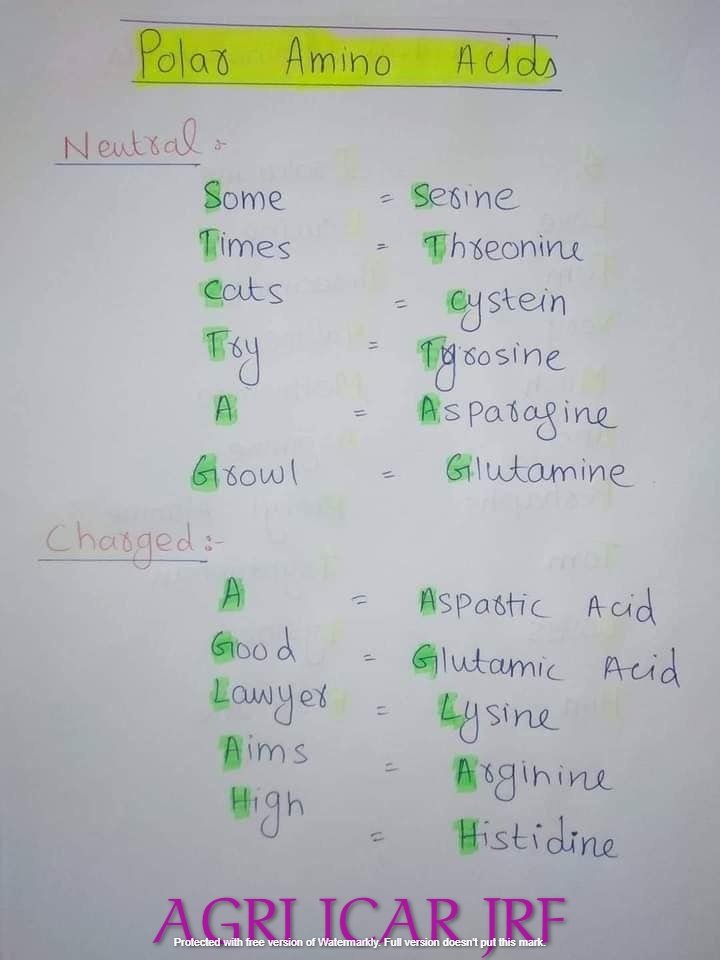 Polar Amino Acids
Neutral :-
Some = Serine
Times = Threonine
Cats = Cystein
Try = Tyrosine
A = Asparagine
Growl = Glutamine
Charged :-
A = Aspartic Acid
Good = Glutamic Acid
Lawyer = Lysine
Aims = Arginine
High = Histidine
AGRI ICAR JRF
Protected with free version of Watermarkly. Full version doesn't put this mark.